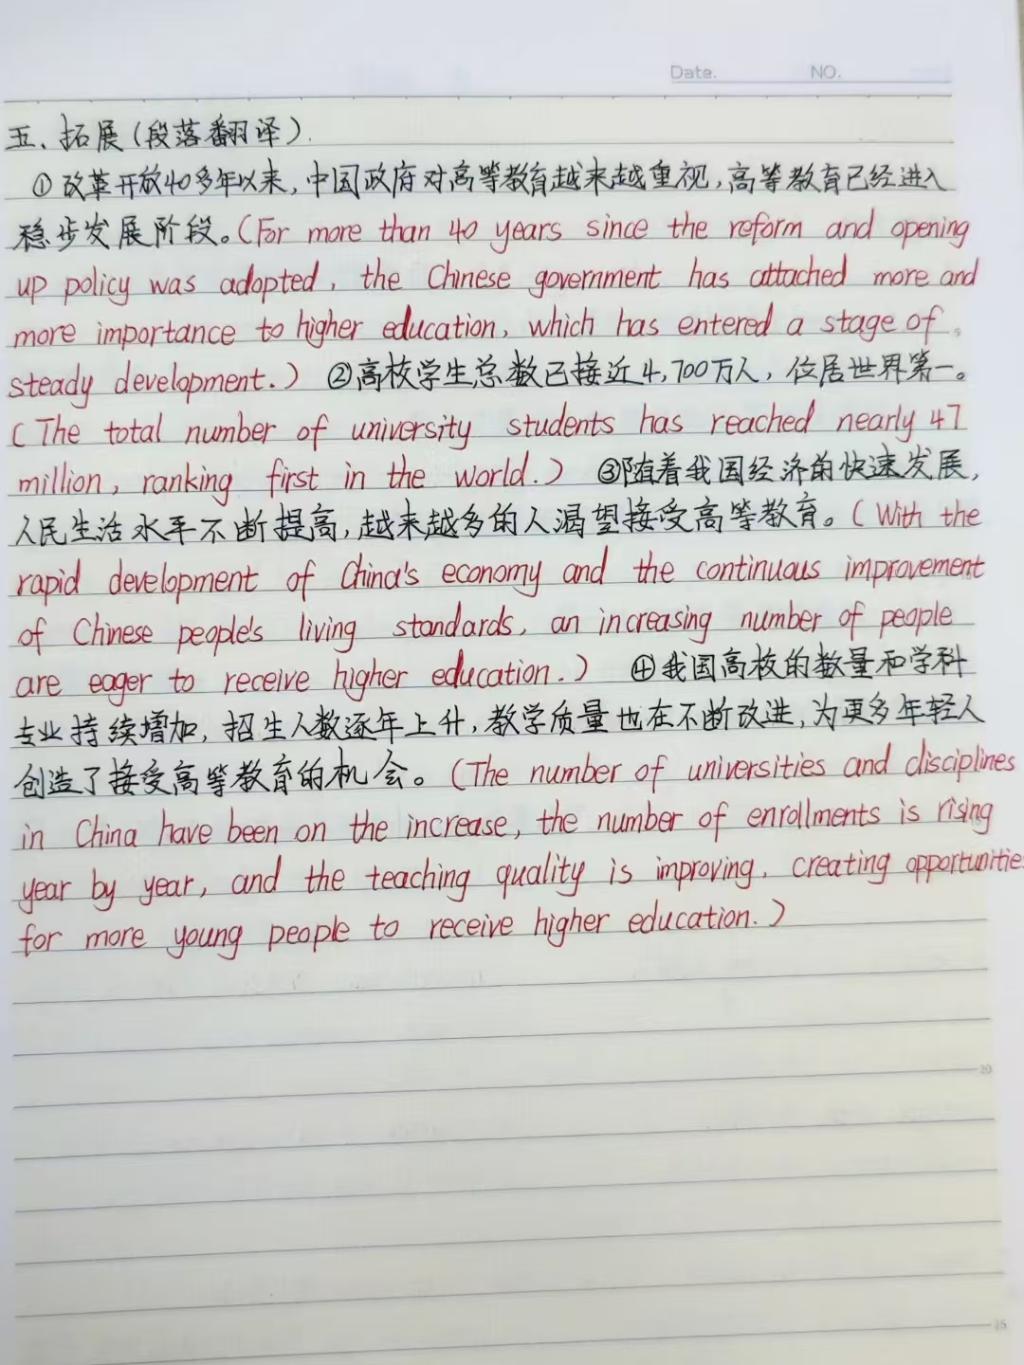 Date. NO.
五、拓展(段落翻译).
①改革开放40多年以来,中国政府对高等教育越来越重视,高等教育已经进入
稳步发展阶段。(For more than 40 years since the reform and opening
up policy was adopted, the Chinese government has attached more and
more importance to higher education, which has entered a stage of
steady development.) ②高校学生总数已接近4,700万人,位居世界第一。
(The total number of university students has reached nearly 47
million, ranking first in the world.) ③随着我国经济的快速发展,
人民生活水平不断提高,越来越多的人渴望接受高等教育。(With the
rapid development of China's economy and the continuous improvement
of Chinese people's living standards, an increasing number of people
are eager to receive higher education.) ④我国高校的数量和学科
专业持续增加,招生人数逐年上升,教学质量也在不断改进,为更多年轻人
创造了接受高等教育的机会。(The number of universities and disciplines
in China have been on the increase, the number of enrollments is rising
year by year, and the teaching quality is improving, creating opportunities
for more young people to receive higher education.)
20
25